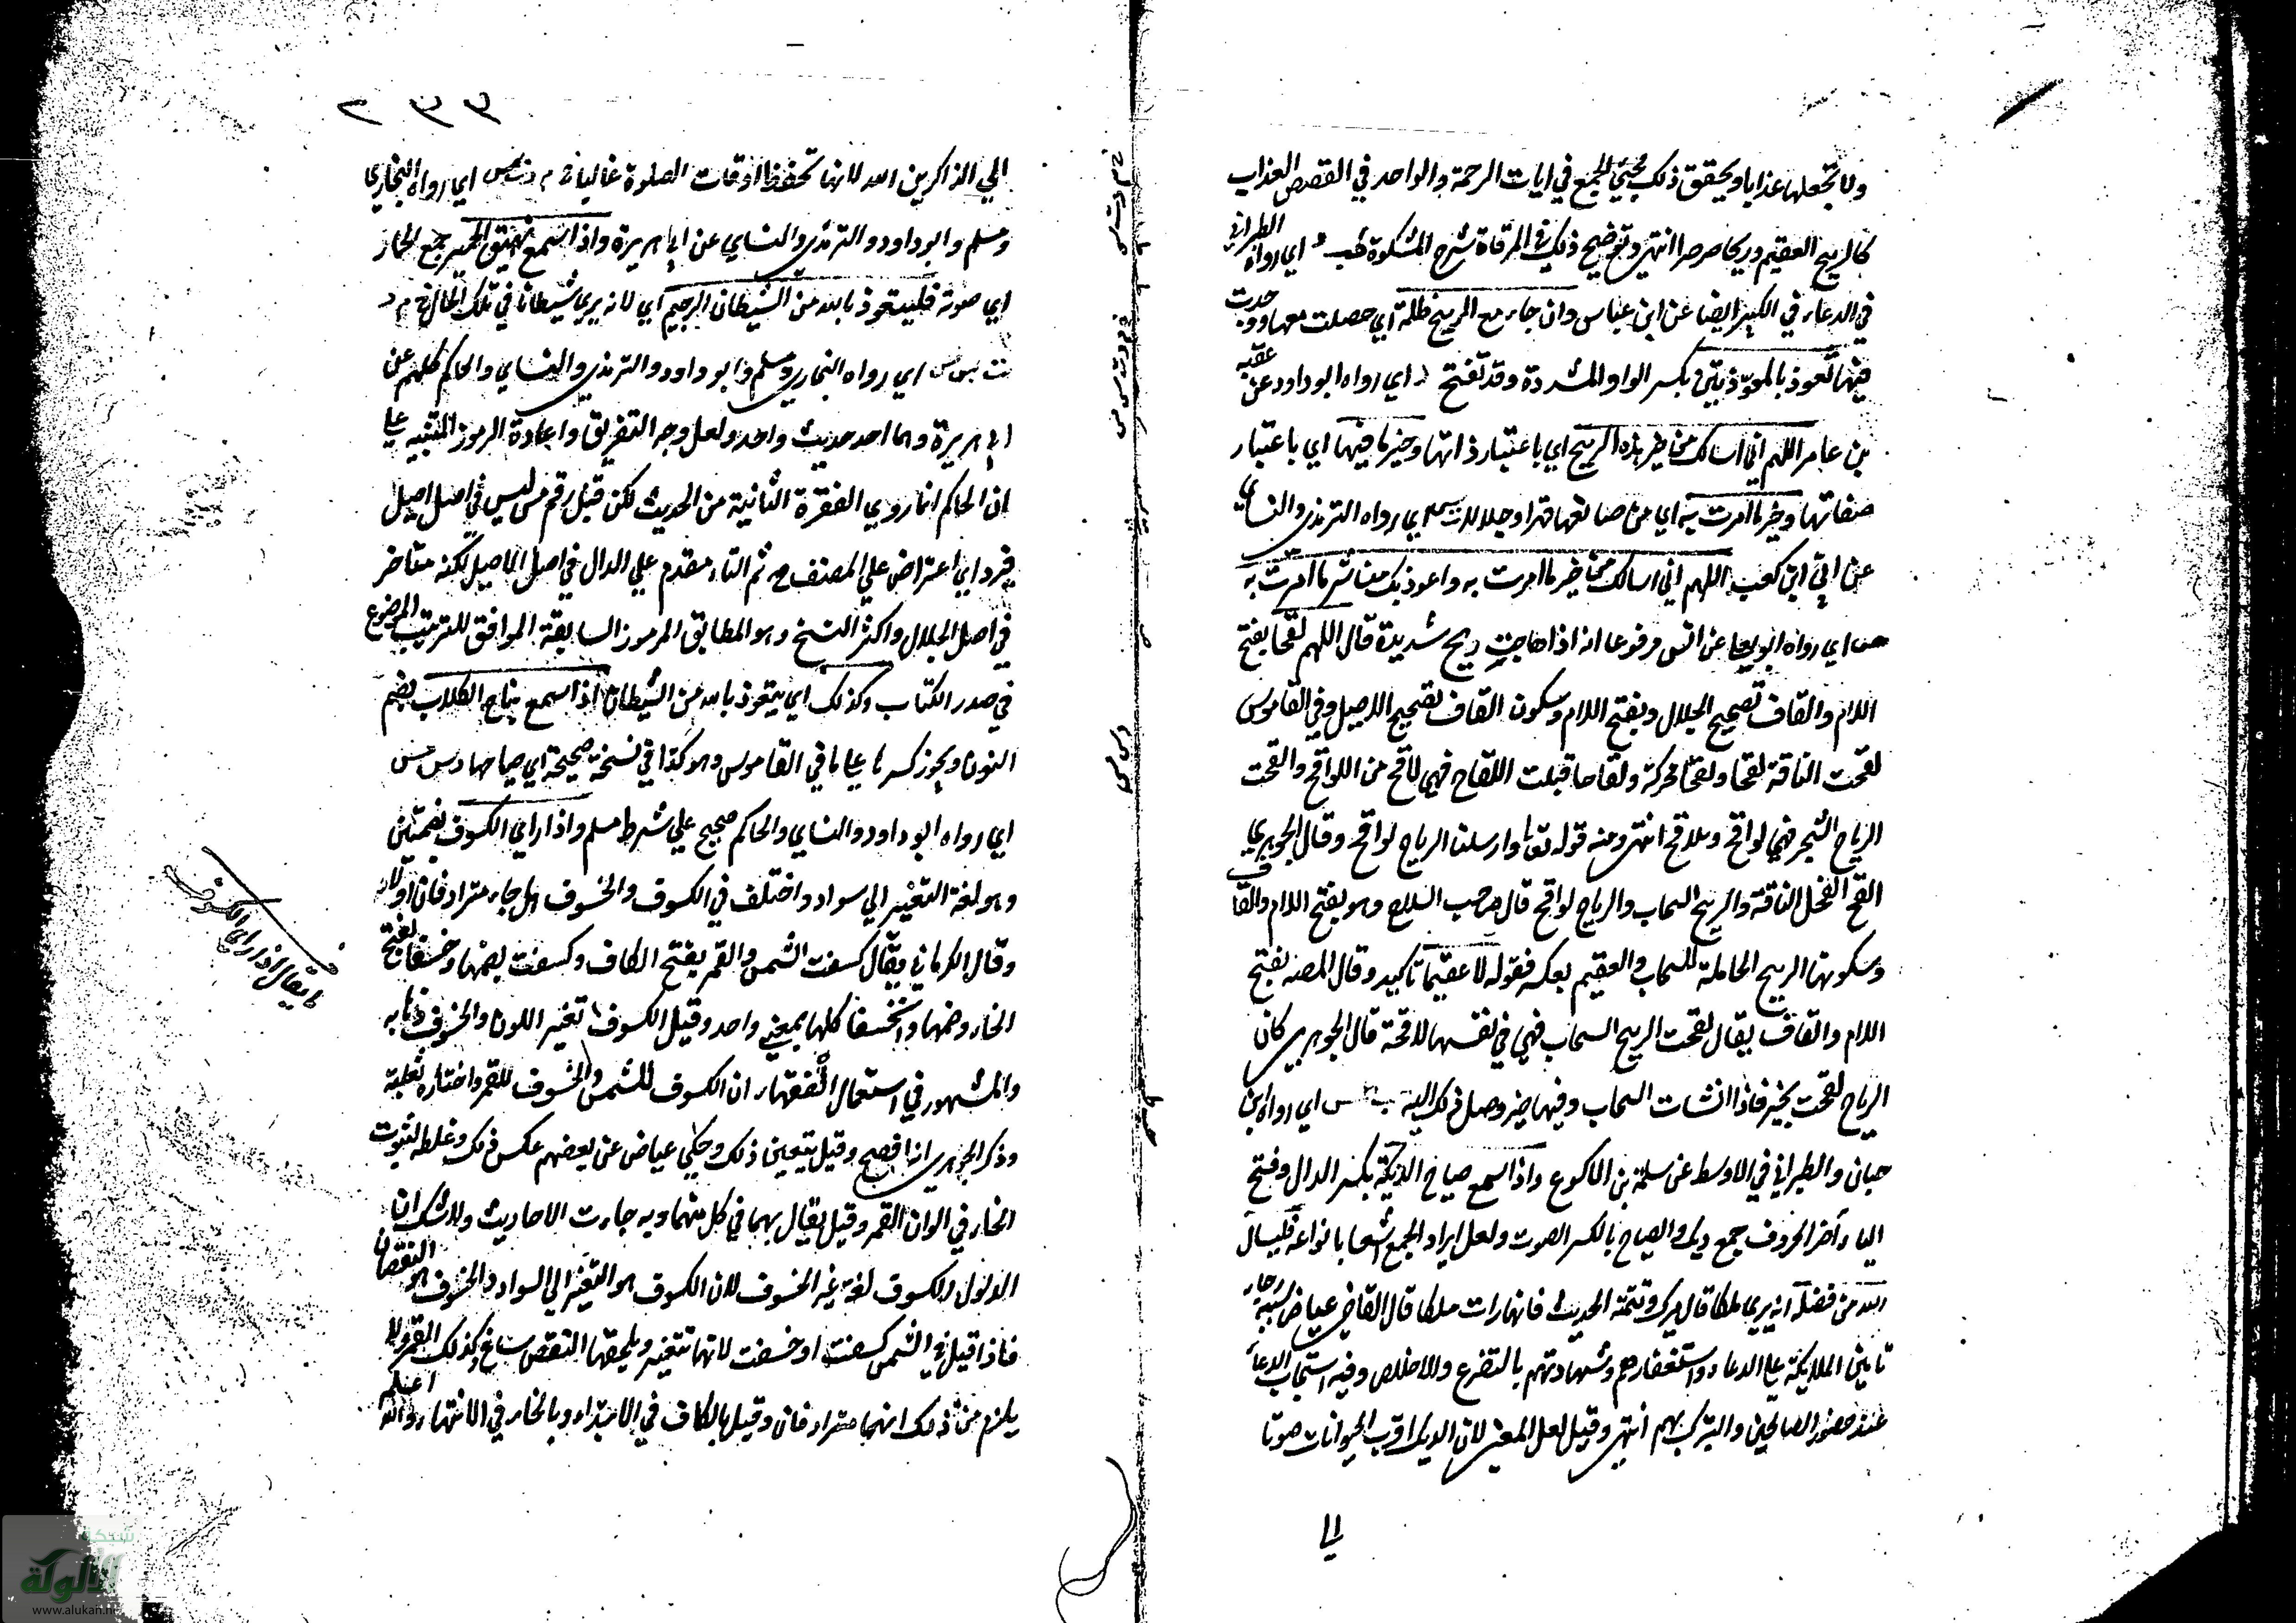 ولا تجعلها عذابا ويحقق ذلك مجيئ الجمع في ايات الرحمة والواحد في القصص العذاب
كالريح العقيم وريحا صرصرا انتهى وتوضيح ذلك في المرقاة شرح المشكوة طب اي رواه الطبراني
في الدعاء في الكبير ايضا عن ابن عباس وان جاء مع الريح ظلمة اي حصلت معها ووجدت
فيها تعوذ بالمعوّذتين بكسر الواو المشددة وقد تفتح د اي رواه ابو داود عن عقبه
بن عامر اللهم اني اسالك من خير هذه الريح اي باعتبار ذاتها وخير ما فيها اي باعتبار
صفاتها وخير ما امرت به اي من صانعها قهرا وجلالا ت س اي رواه الترمذي والنساي
عن ابيّ ابن كعب اللهم اني اسالك من خير ما امرت به واعوذ بك من شر ما امرت به
ص اي رواه ابو يعلى عن انس مرفوعا انه اذا هاجت ريح شديدة قال اللهم لقحا بفتح
اللام والقاف تصحيح الجلال وبفتح اللام وسكون القاف تصحيح الاصيل وفي القاموس
لقحت الناقة لقحا ولقحا محركة ولقاحا قبلت اللقاح فهي لاقح من اللواقح والقحت
الرياح الشجر فهي لواقح وملاقح انتهى ومنه قوله تعا وارسلنا الرياح لواقح وقال الجوهري
القح الفحل الناقة والريح السحاب والرياح لواقح قال صاحب السلاح وهو بفتح اللام والقاف
وسكونها الريح الحاملة للسحاب والعقيم بعكسه فقوله لا عقيما تاكيد وقال المصنف بفتح
اللام والقاف يقال لقحت الريح السحاب فهي في نفسها لاقحة قال الجوهري كان
الرياح لقحت بخير فاذا انشات السحاب وفيها خير وصل ذلك اليه اي رواه ابن
حبان والطبراني في الاوسط عن سلمة بن الاكوع واذا سمع صياح الديكة بكسر الدال وفتح
الياء آخر الحروف جمع ديك والصياح بالكسر الصوت ولعل ايراد الجمع اشعارا بانواعه فليسال
الله من فضله انه يري ملكا قال ميرك وتتمة الحديث فانها رات ملكا قال القاضي عياض سببه رجاء
تامين الملايكة على الدعاء واستغفارهم وشهادتهم بالتضرع والاخلاص وفيه استحباب الدعآ
عند حضور الصالحين والتبرك بهم انتهى وقيل لعل المعنى لان الديك اقرب الحيوانات صوتا
الي
٢٣٣
الي الذاكرين الله لانها تحفظ اوقات الصلوة غالبا خ م د ت س اي رواه البخاري
ومسلم وابو داود والترمذي والنساي عن ابي هريرة واذا سمع نهيق الحمير جمع الحمار
اي صوته فليتعوذ بالله من الشيطان الرجيم اي لانه يري شيطانا في تلك الحال خ م د
ت س مس اي رواه البخاري ومسلم وابو داود والترمذي والنساي والحاكم كلهم عن
ابي هريرة وهما احد حديث واحد ولعل وجه التفريق واعادة الرموز التنبيه علي
ان الحاكم انما روي الفقرة الثانية من الحديث لكن قيل رقم مس ليس في اصل اصيل
فيرد اي اعتراض علي المصنف ثم التاء مقدم علي الدال في اصل الاصيل لكنه متاخر
في اصل الجلال واكثر النسخ وهو المطابق المرموز السابقة الموافق للترتيب الموضوع
في صدر الكتاب وكذلك اي يتعوذ بالله من الشيطان اذا سمع نباح الكلاب بضم
النون ويجوز كسرها على ما في القاموس وهو كذا في نسخة صحيحة اي صياحها د س مس
اي رواه ابو داود والنساي والحاكم صحيح علي شرط مسلم واذا راي الكسوف بضمتين
وهو لغة التغير الي سواد واختلف في الكسوف والخسوف هل جاء مترادفان او لا
وقال الكرماني يقال كسفت الشمس والقمر بفتح الكاف وكسفت بضمها وخسفا بفتح
الخاء وضمها وانخسفا كلها بمعنى واحد وقيل الكسوف تغير اللون والخسوف ذهابه
والمشهور في استعمال الفقهاء ان الكسوف للشمس والخسوف للقمر واختاره ثعلبة
وذكر الجوهري انه افصح وقيل يتعين ذلك وحكي عياض عن بعضهم عكس ذلك وغلط لثبوت
الخاء في القمر وقيل يقال بهما في كل منهما وبه جاءت الاحاديث ولا شك ان
الكسوف لغة غير الخسوف لان الكسوف هو التغير الي السواد والخسوف هو النقصان
فاذا قيل في الشمس كسفت او خسفت لانها تتغير ويلحقها النقص ساغ وكذلك القمر ولا
يلزم من ذلك انهما مترادفان وقيل بالكاف في الابتداء وبالخاء في الانتهاء والله اعلم
ما يقال اذا راي الكسوف
شبكة
الألوكة
www.alukah.net